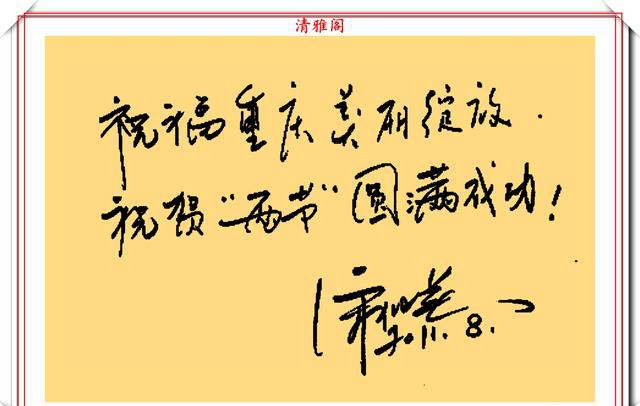 清雅阁
祝福重庆美丽绽放.
祝贺"两节"圆满成功!
2011.8.